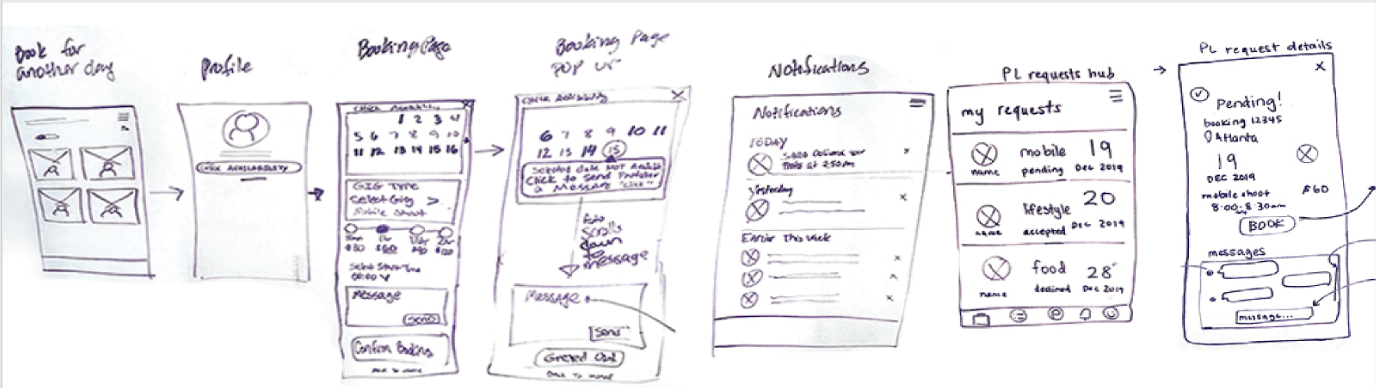 Book for
another day
Profile
Booking Page
Check Availability
1 2 3 4
5 6 7 8 9 10
11 12 13 14 15 16
GIG TYPE
Select Gig >
Mobile Shoot
1hr
$30 $60
Select Start Time
00:00
Message
Send
Confirm Booking
Back to home
Booking Page
POP UP
Check Availability
6 7 8 9 10 11
12 13 14 15
Selected date NOT Availabl
Click to send Partner
a Message "click"
auto
Scrolls
down
to
message
Message
Send
Greyed Out
Back to home
Notifications
Notifications
TODAY
Yesterday
Earlier This Week
PL requests hub
my requests
mobile 19
name pending Dec 2019
lifestyle 20
name accepted Dec 2019
food 28
name declined Dec 2019
PL request details
Pending!
booking 12345
Atlanta
19
DEC 2019
mobile shoot $60
8:00-8:30am
BOOK
messages
message...